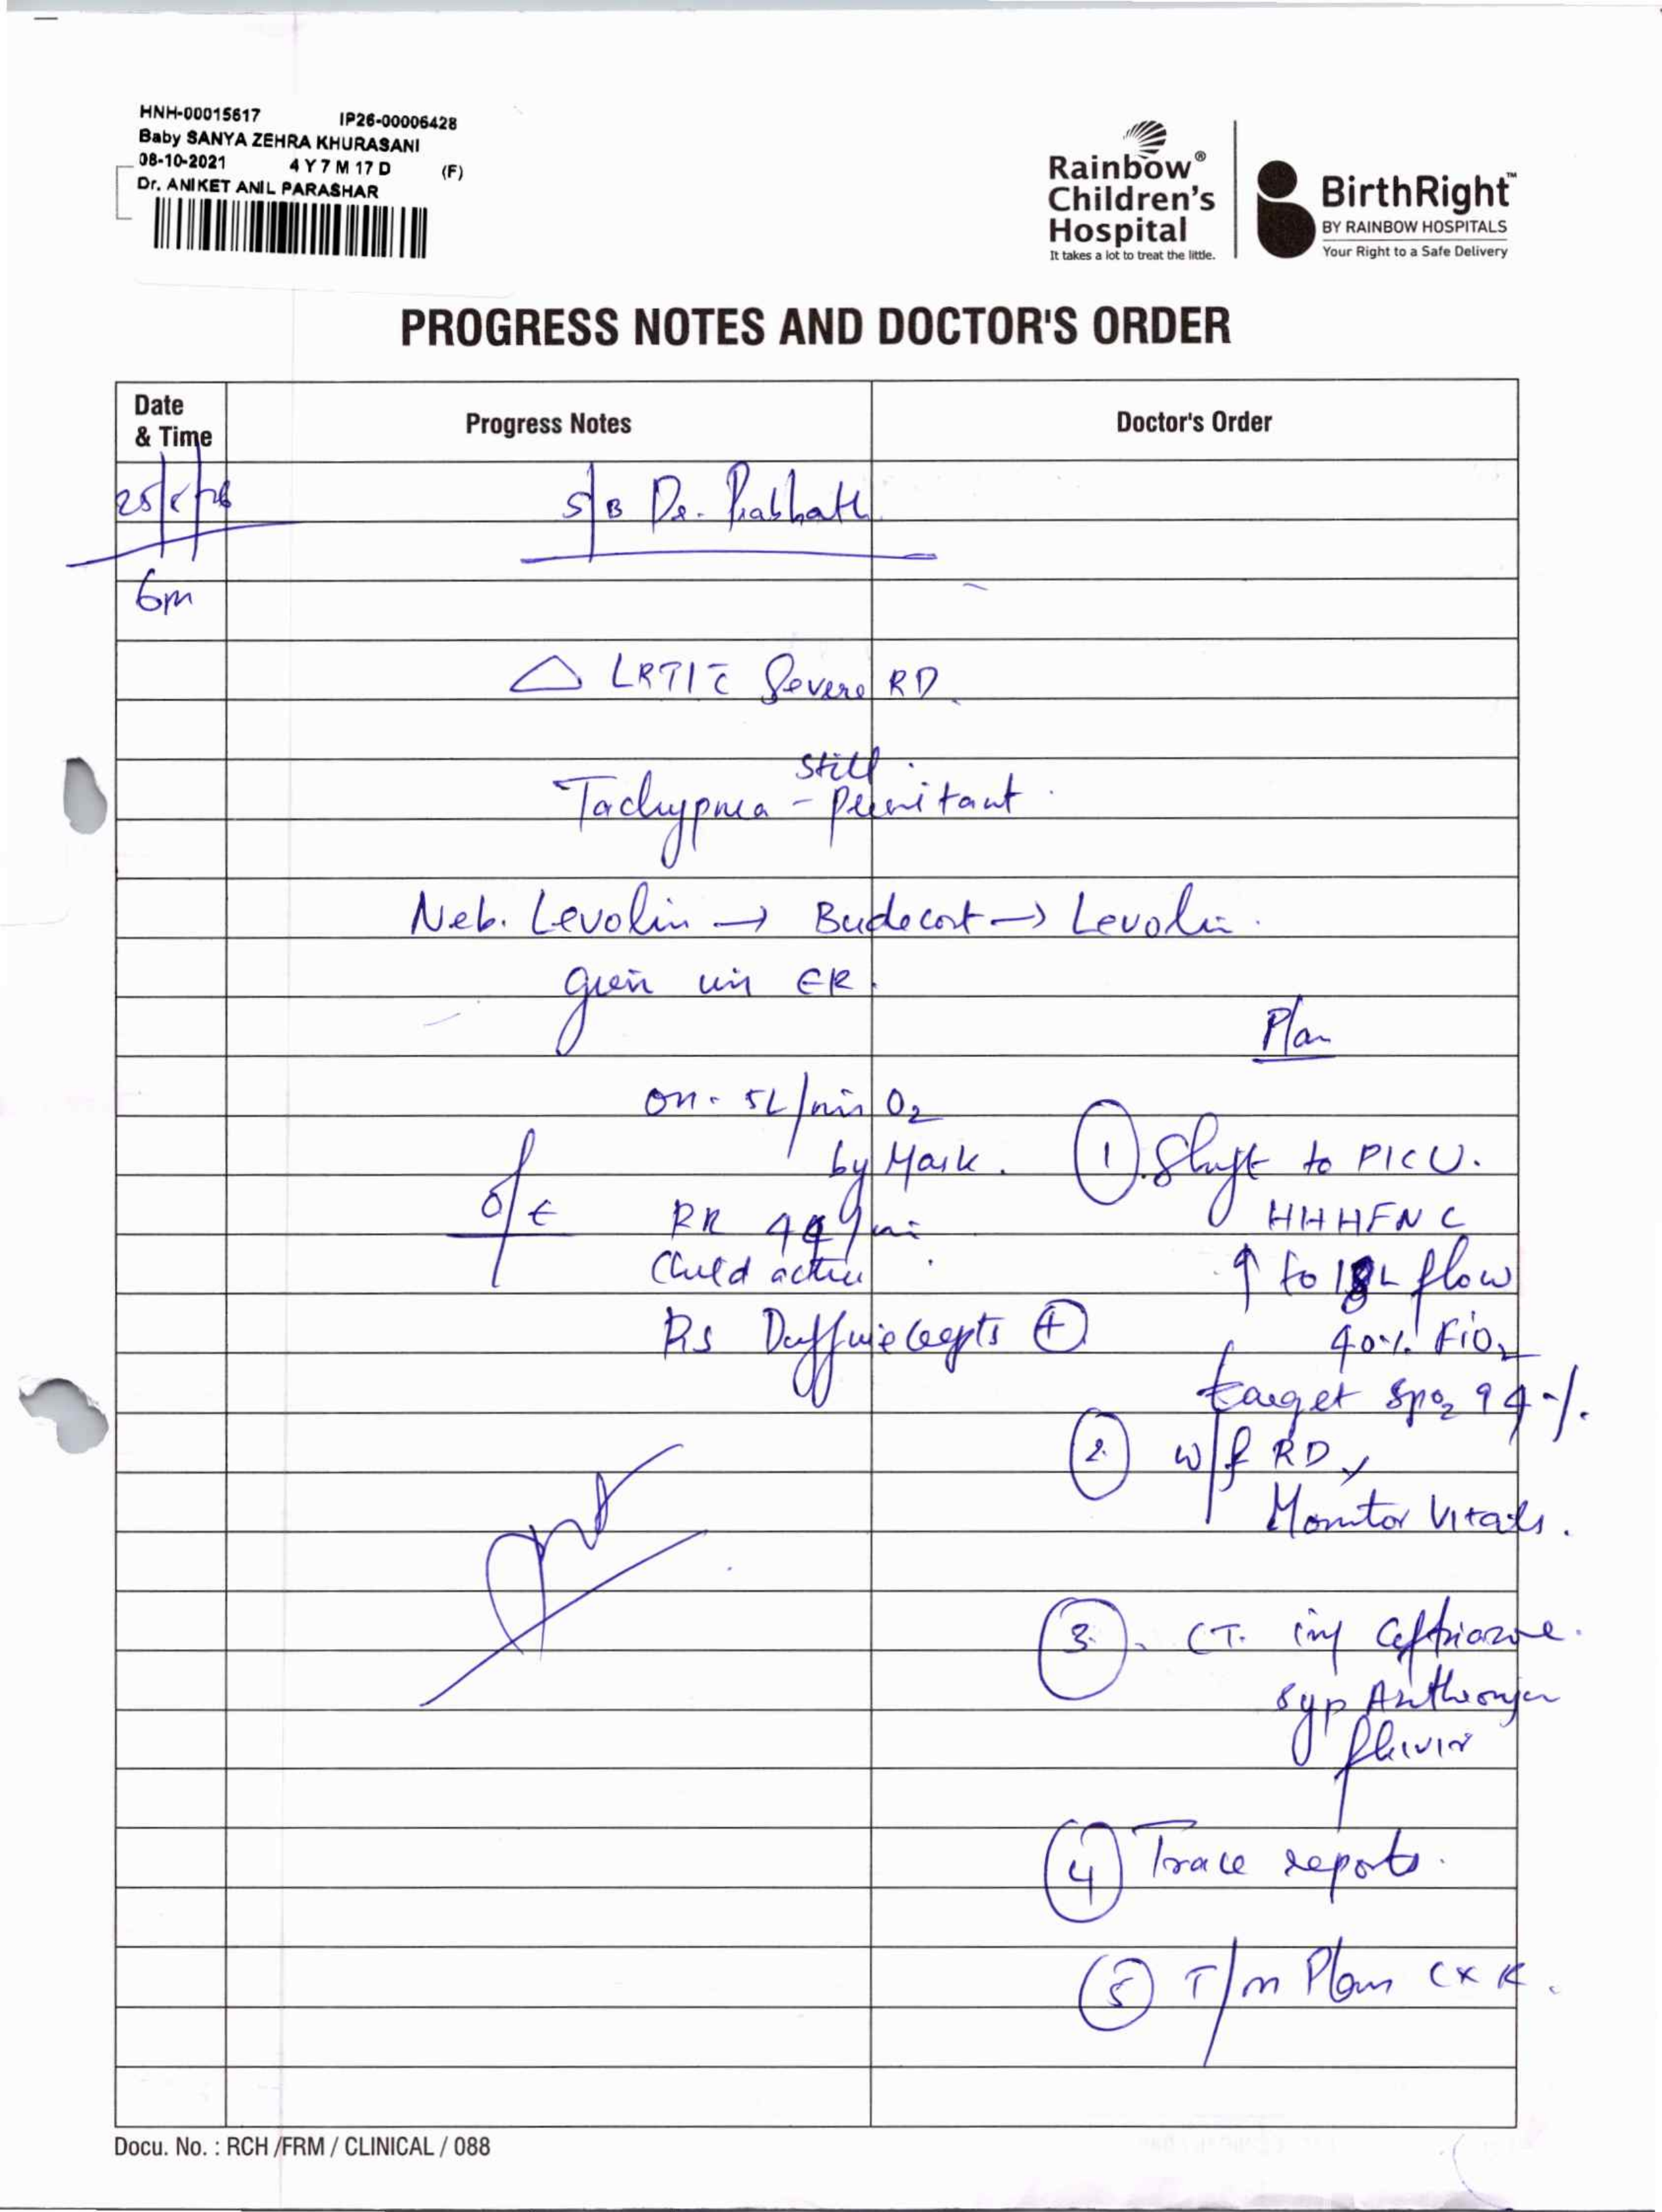 HNH-00015617 IP26-00006428
Baby SANYA ZEHRA KHURASANI
08-10-2021 4 Y 7 M 17 D (F)
Dr. ANIKET ANIL PARASHAR
Rainbow®
Children's
Hospital
It takes a lot to treat the little.
BirthRight™
BY RAINBOW HOSPITALS
Your Right to a Safe Delivery
PROGRESS NOTES AND DOCTOR'S ORDER
Date
& Time
Progress Notes
Doctor's Order
25/5/26
S/B Dr. Prabhath
6pm
△ LRTI c̄ Severe RD
still
Tachypnea -
Neb. Levolin → Budecort → Levolin.
given in ER.
Plan
on - 5L/min O2
by Mask.
① Shift to PICU.
O/E
RR 44/min
HHHFNC
Child active
↑ to 18L flow
Rs Diffuse crepts ⊕
40% FiO2
target SpO2 94%.
② w/f RD,
Monitor Vitals.
③. CT. inj Ceftriaxone.
syp
④ Trace reports.
⑤ T/m Plan CXR.
Docu. No. : RCH /FRM / CLINICAL / 088